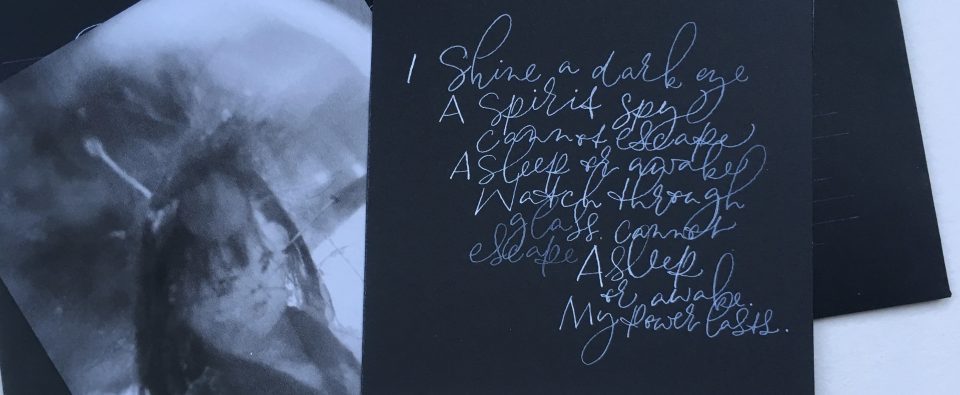 I Shine a dark eye
A Spirit spy
cannot escape
Asleep or awake
Watch through
glass. cannot
escape Asleep
or awake.
My Power lasts.